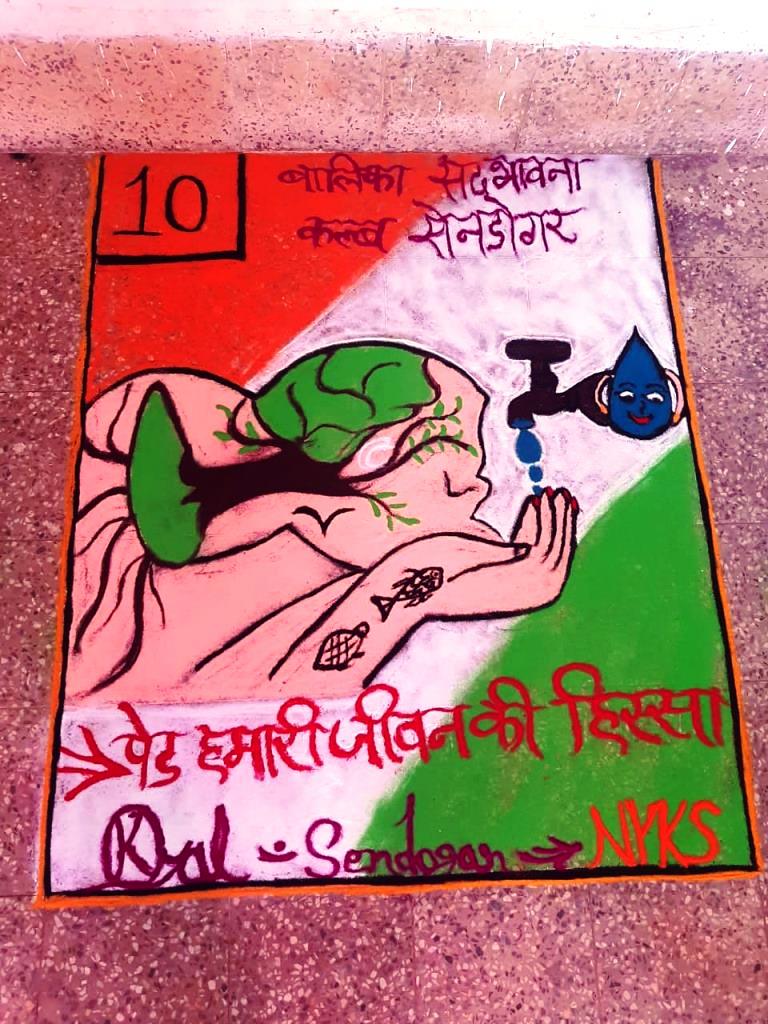 10
बालिका सद्भावना
कल्ब सेनडोगर
पेड हमारी जीवन की हिस्सा
Sendogar NYKS